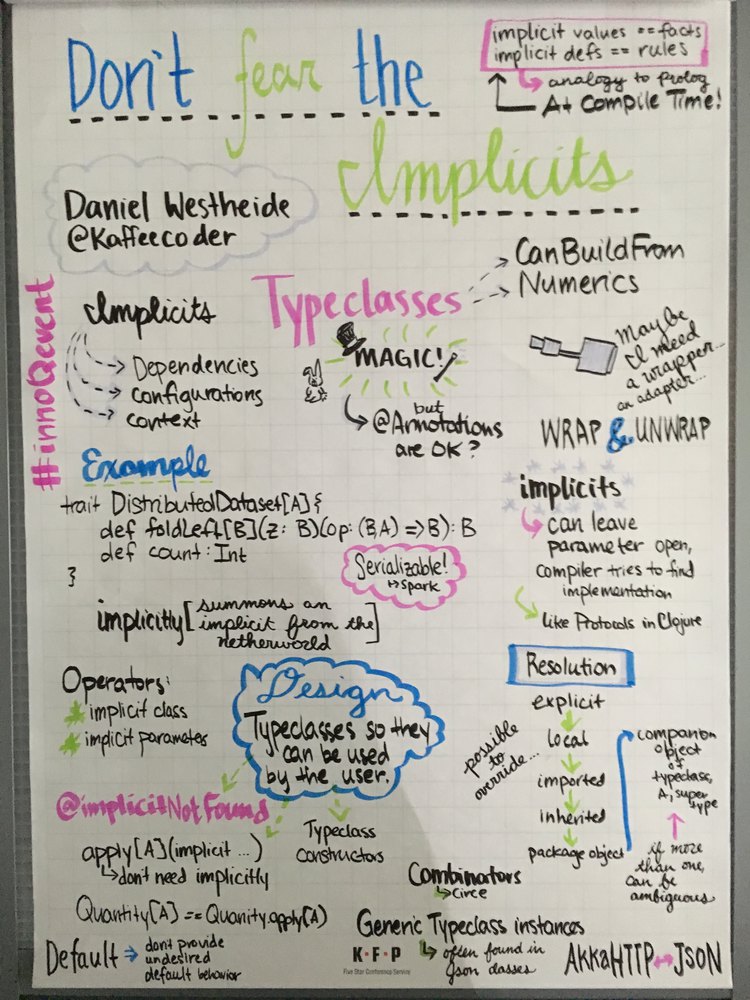 Don't fear the
Implicits
implicit values == facts
implicit defs == rules
analogy to prolog
At Compile Time!
Daniel Westheide
@Kaffeecoder
#innoQevent
Implicits
Dependencies
configurations
context
Typeclasses
CanBuildFrom
Numerics
MAGIC!
but
@Annotations
are OK?
Maybe
I need
a wrapper...
an adapter...
WRAP & UNWRAP
Example
trait DistributedDataset[A] {
def foldLeft[B](z: B)(op: (B,A) => B): B
def count: Int
}
Serializable!
↦ Spark
implicitly [summons an
implicit from the
netherworld]
implicits
can leave
parameter open,
compiler tries to find
implementation
like Protocols in Clojure
Operators:
implicit class
implicit parameter
Design
Typeclasses so they
can be used
by the user.
@implicitNotFound
apply[A](implicit ...)
don't need implicitly
Quantity[A] == Quanity.apply(A)
Typeclass
constructors
Default → dont provide
undesired
default behavior
Resolution
explicit
local
imported
inherited
package object
possible
to
override...
companion
object
of
typeclass,
A, super
type
if more
than one,
can be
ambiguous
Combinators
circe
Generic Typeclass instances
often found in
Json classes
AkkaHTTP ↔ JSON
K·F·P
Five Star Conference Service